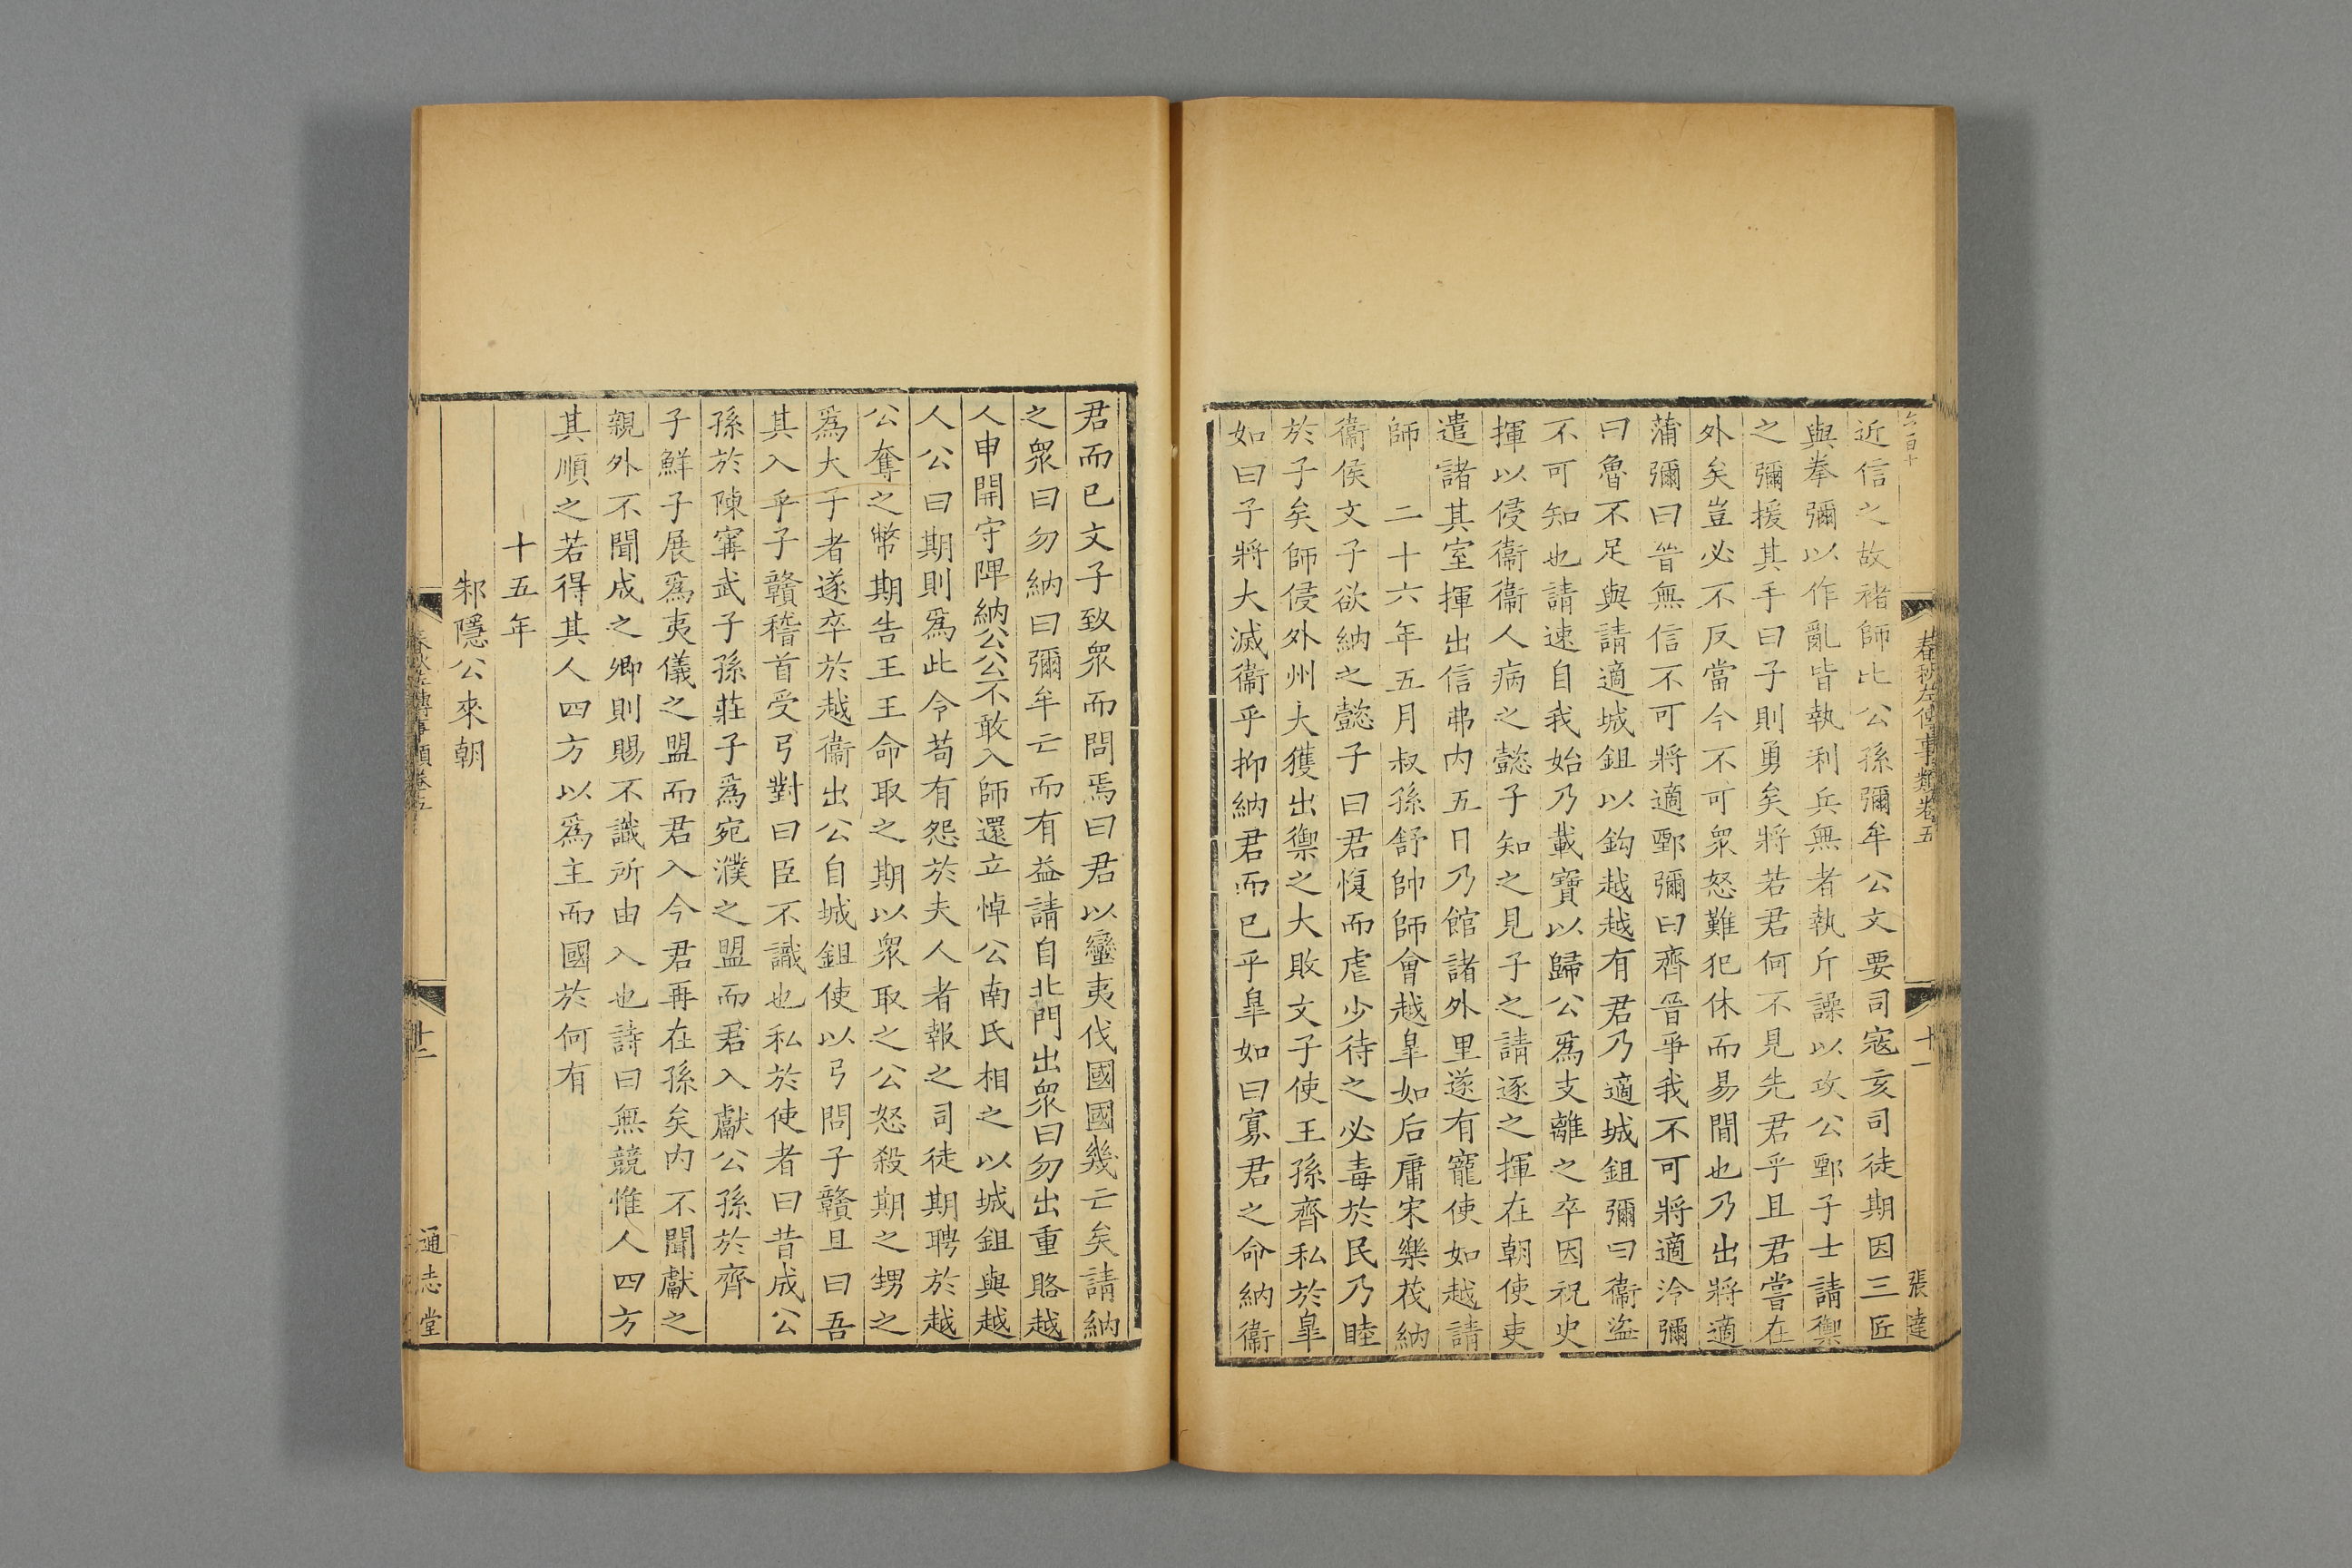 六百十
春秋左傳事類卷五
十一
張達
近信之故褚師比公孫彌牟公文要司寇亥司徒期因三匠
與拳彌以作亂皆執利兵無者執斤譟以攻公鄄子士請禦
之彌援其手曰子則勇矣將若君何不見先君乎且君嘗在
外矣豈必不反當今不可衆怒難犯休而易間也乃出將適
蒲彌曰晉無信不可將適鄄彌曰齊晉爭我不可將適泠彌
曰魯不足與請適城鉏以鈎越越有君乃適城鉏彌曰衞盜
不可知也請速自我始乃載寶以歸公爲支離之卒因祝史
揮以侵衞衞人病之懿子知之見子之請逐之揮在朝使吏
遣諸其室揮出信弗内五日乃館諸外里遂有寵使如越請
師　二十六年五月叔孫舒帥師會越臯如后庸宋樂茷納
衞侯文子欲納之懿子曰君愎而虐少待之必毒於民乃睦
於子矣師侵外州大獲出禦之大敗文子使王孫齊私於臯
如曰子將大滅衞乎抑納君而已乎臯如曰寡君之命納衞
君而已文子致衆而問焉曰君以蠻夷伐國國幾亡矣請納
之衆曰勿納曰彌牟亡而有益請自北門出衆曰勿出重賂越
人申開守陴納公公不敢入師還立悼公南氏相之以城鉏與越
人公曰期則爲此令苟有怨於夫人者報之司徒期聘於越
公奪之幣期告王王命取之期以衆取之公怒殺期之甥之
爲大子者遂卒於越衞出公自城鉏使以弓問子贛且曰吾
其入乎子贛稽首受弓對曰臣不識也私於使者曰昔成公
孫於陳甯武子孫莊子爲宛濮之盟而君入獻公孫於齊
子鮮子展爲夷儀之盟而君入今君再在孫矣内不聞獻之
親外不聞成之卿則賜不識所由入也詩曰無競惟人四方
其順之若得其人四方以爲主而國於何有
十五年
邾隱公來朝
春秋左傳事類卷五
十二
通志堂